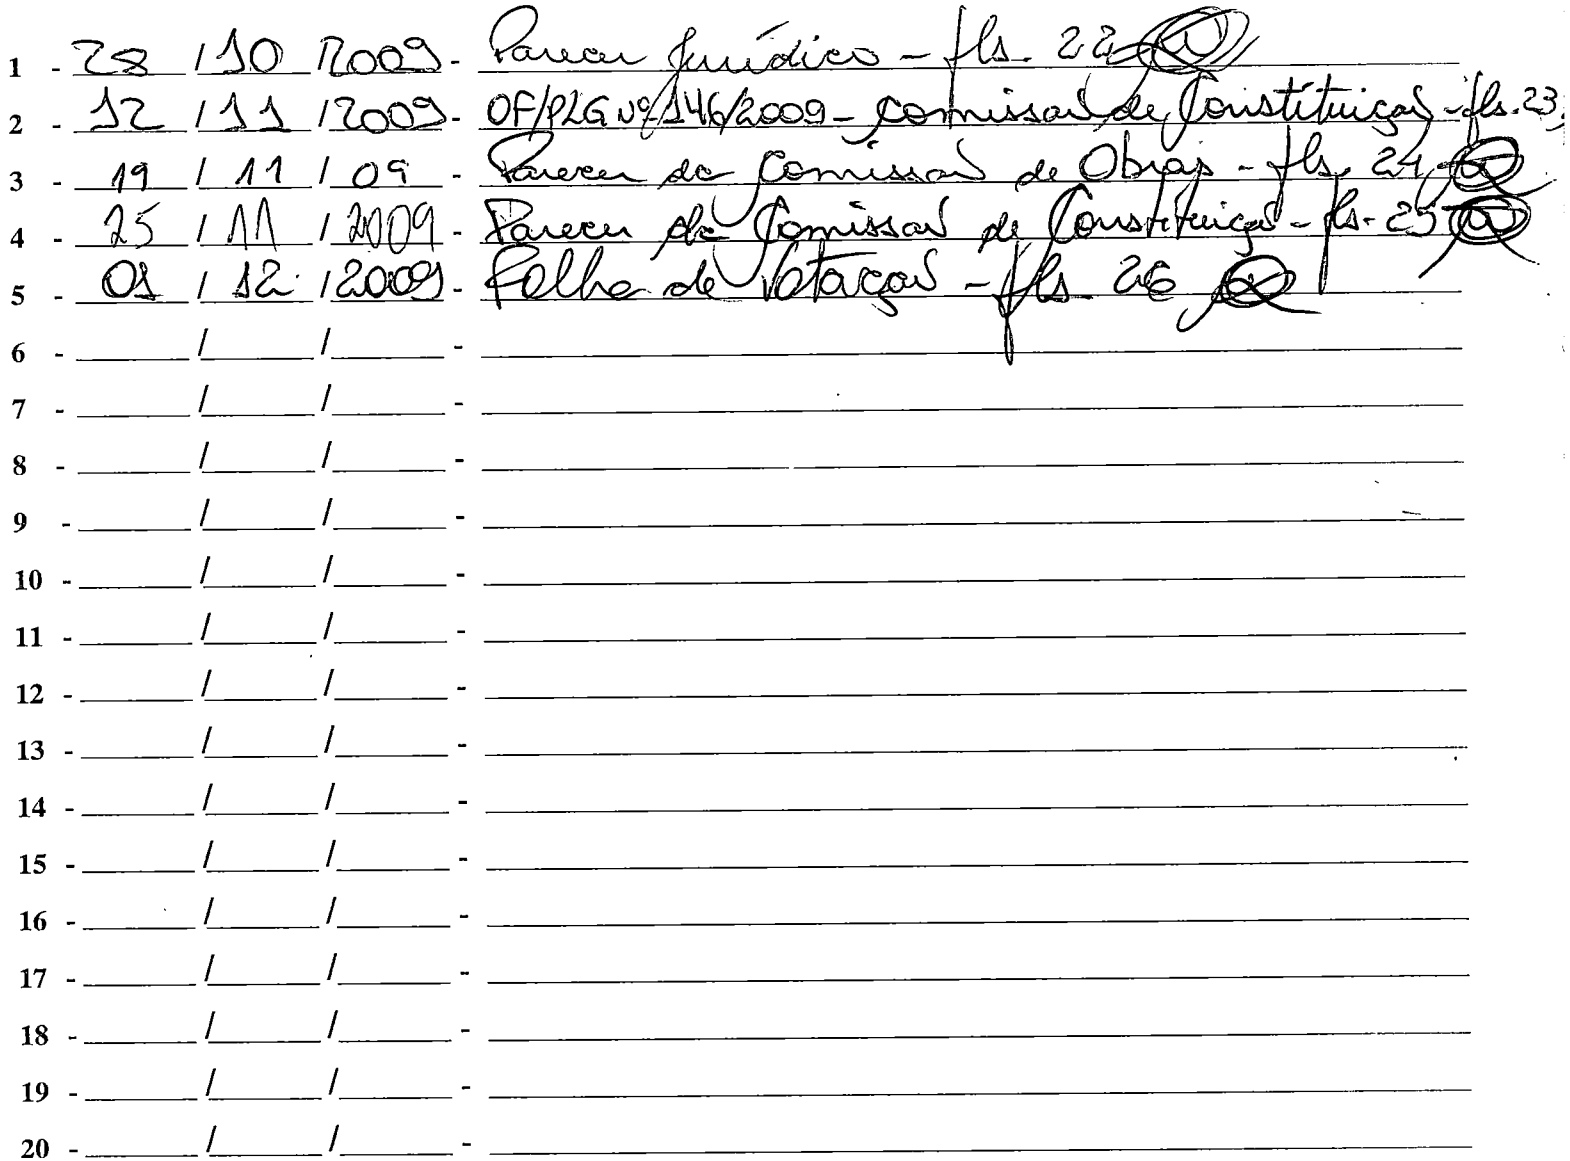 1 - 28 / 10 / 2009 - Parecer Jurídico - fls. 22
2 - 12 / 11 / 2009 - OF/PLG Nº 146/2009 - Comissão de Constituição - fls. 23
3 - 19 / 11 / 09 - Parecer da Comissão de Obras - fls. 24
4 - 25 / 11 / 2009 - Parecer da Comissão de Constituição - fls. 25
5 - 01 / 12 / 2009 - Folha de Votação - fls. 26
6 - ____ / ____ / ____ -
7 - ____ / ____ / ____ -
8 - ____ / ____ / ____ -
9 - ____ / ____ / ____ -
10 - ____ / ____ / ____ -
11 - ____ / ____ / ____ -
12 - ____ / ____ / ____ -
13 - ____ / ____ / ____ -
14 - ____ / ____ / ____ -
15 - ____ / ____ / ____ -
16 - ____ / ____ / ____ -
17 - ____ / ____ / ____ -
18 - ____ / ____ / ____ -
19 - ____ / ____ / ____ -
20 - ____ / ____ / ____ -